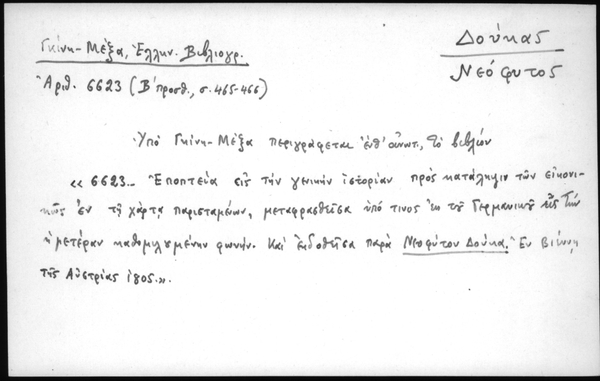 Γκίνη-Μέξα, Ἑλλην. Βιβλιογρ.
Δούκας
Νεόφυτος
Ἀριθ. 6623 (Β΄ προσθ., σ. 465-466)
Ὑπὸ Γκίνη-Μέξα περιγράφεται τὸ βιβλίον
« 6623.- Ἐποπτεία εἰς τὴν γενικὴν ἱστορίαν πρὸς κατάληψιν τῶν εἰκονι-
κῶς ἐν τῇ χάρτᾳ παρισταμένων, μεταφρασθεῖσα ὑπό τινος ἐκ τοῦ Γερμανικοῦ εἰς τὴν
ἡμετέραν καθωμιλημένην φωνήν. Καὶ ἐκδοθεῖσα παρὰ Νεοφύτου Δούκα. Ἐν Βιέννῃ
τῆς Αὐστρίας 1805.».